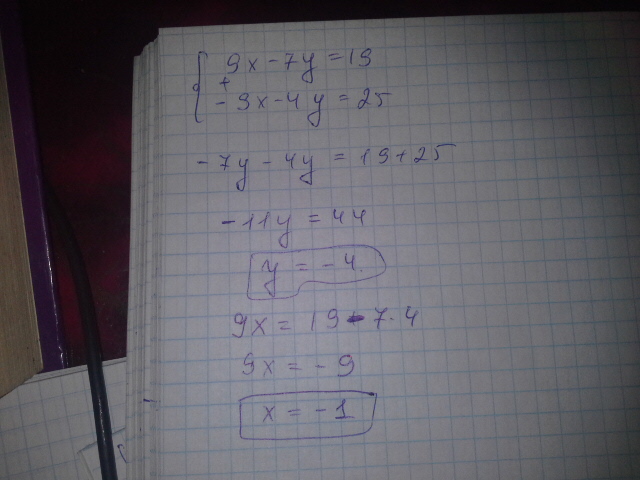 9x-7y=19
+
-9x-4y=25
-7y-4y=19+25
-11y=44
y=-4.
9x=19-7·4
9x=-9
x=-1